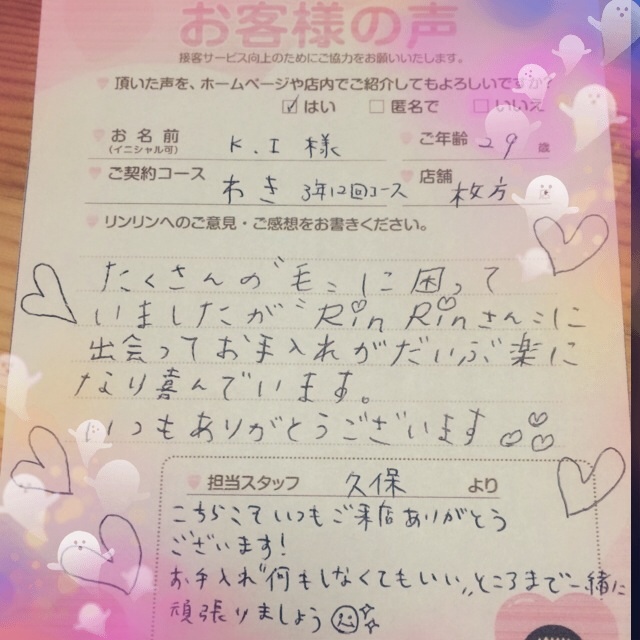 お客様の声
接客サービス向上のためにご協力をお願いいたします。
頂いた声を、ホームページや店内でご紹介してもよろしいですか?
☑はい □匿名で □いいえ
お名前 K.I 様 ご年齢 29 歳
(イニシャル可)
ご契約コース わき 3年12回コース 店舗 枚方
リンリンへのご意見・ご感想をお書きください。
たくさんの"毛"に困って
いましたが RinRinさんに
出会ってお手入れがだいぶ楽に
なり喜んでいます。
いつもありがとうございます♡♡♡
担当スタッフ 久保 より
こちらこそいつもご来店ありがとう
ございます!
お手入れ"何もしなくてもいい"ところまで一緒に
頑張りましょう